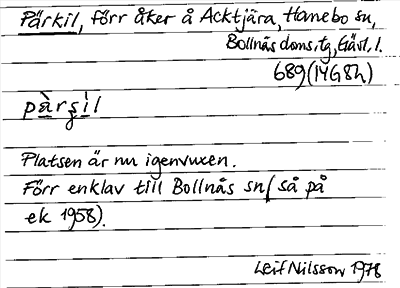 Pärkil, förr åker å Acktjära, Hanebo sn,
Bollnäs doms. tg, Gävl. l.
689 (14G8h)
pàrşìl
Platsen är nu igenvuxen.
Förr enklav till Bollnäs sn (så på
ek 1958).
Leif Nilsson 1978